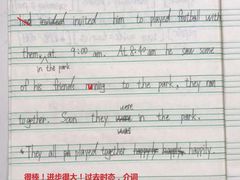 invited him to played football with
them at 9:00 am. At 8:40 am he saw some
in the park
of his friends runing to the park, they ran
together. Soon they were in the park.
were
* They all played together happily happily happily.
得棒！进步很大！过去时态，介词